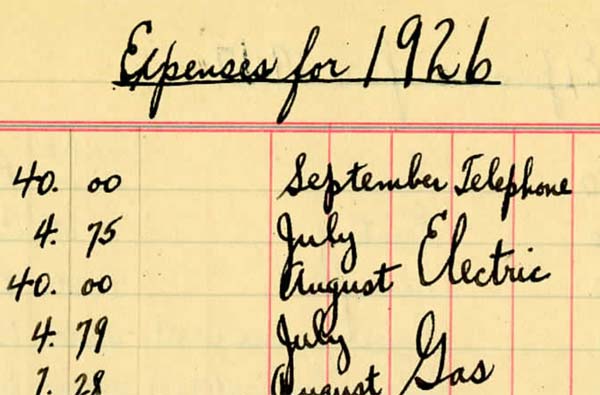 Expenses for 1926
40. 00 September Telephone
4. 75 July
40. 00 August Electric
4. 79 July
1. 28 August Gas